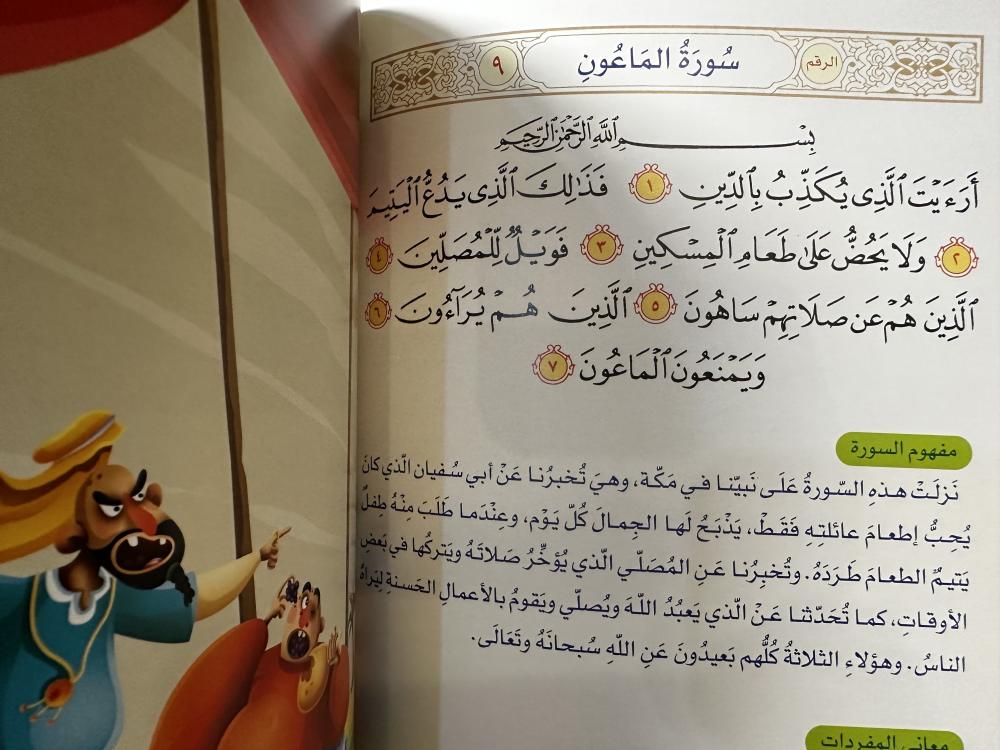 الرقم سُورَةُ المَاعُونِ ٩
بِسْمِ اللَّهِ الرَّحْمَٰنِ الرَّحِيمِ
أَرَءَيْتَ ٱلَّذِى يُكَذِّبُ بِٱلدِّينِ ١ فَذَٰلِكَ ٱلَّذِى يَدُعُّ ٱلْيَتِيمَ
٢ وَلَا يَحُضُّ عَلَىٰ طَعَامِ ٱلْمِسْكِينِ ٣ فَوَيْلٌ لِّلْمُصَلِّينَ ٤
ٱلَّذِينَ هُمْ عَن صَلَاتِهِمْ سَاهُونَ ٥ ٱلَّذِينَ هُمْ يُرَآءُونَ ٦
وَيَمْنَعُونَ ٱلْمَاعُونَ ٧
مفهوم السورة
نَزلَتْ هذهِ السّورةُ عَلَى نَبيّنا في مَكّة، وهيَ تُخبرُنا عَنْ أبي سُفيان الّذي كانَ
يُحِبُّ إطعامَ عائلتهِ فَقَطْ، يَذْبَحُ لَها الجِمالَ كُلّ يَوْم، وعنْدَما طَلَبَ مِنْهُ طِفلٌ
يَتيمٌ الطعامَ طَرَدَهُ. وتُخبِرُنا عَنِ المُصَلّي الّذي يُؤخِّرُ صَلاتَهُ ويَتركُها في بَعضِ
الأوقاتِ، كما تُحَدّثنا عَنْ الّذي يَعبُدُ اللّهَ ويُصلّي ويَقومُ بالأعمالِ الحَسنةِ ليَراهُ
الناسُ. وهؤلاءِ الثلاثةُ كُلُّهم بَعيدُونَ عَنِ اللّهِ سُبحانَهُ وتَعَالَى.
معاني المفردات